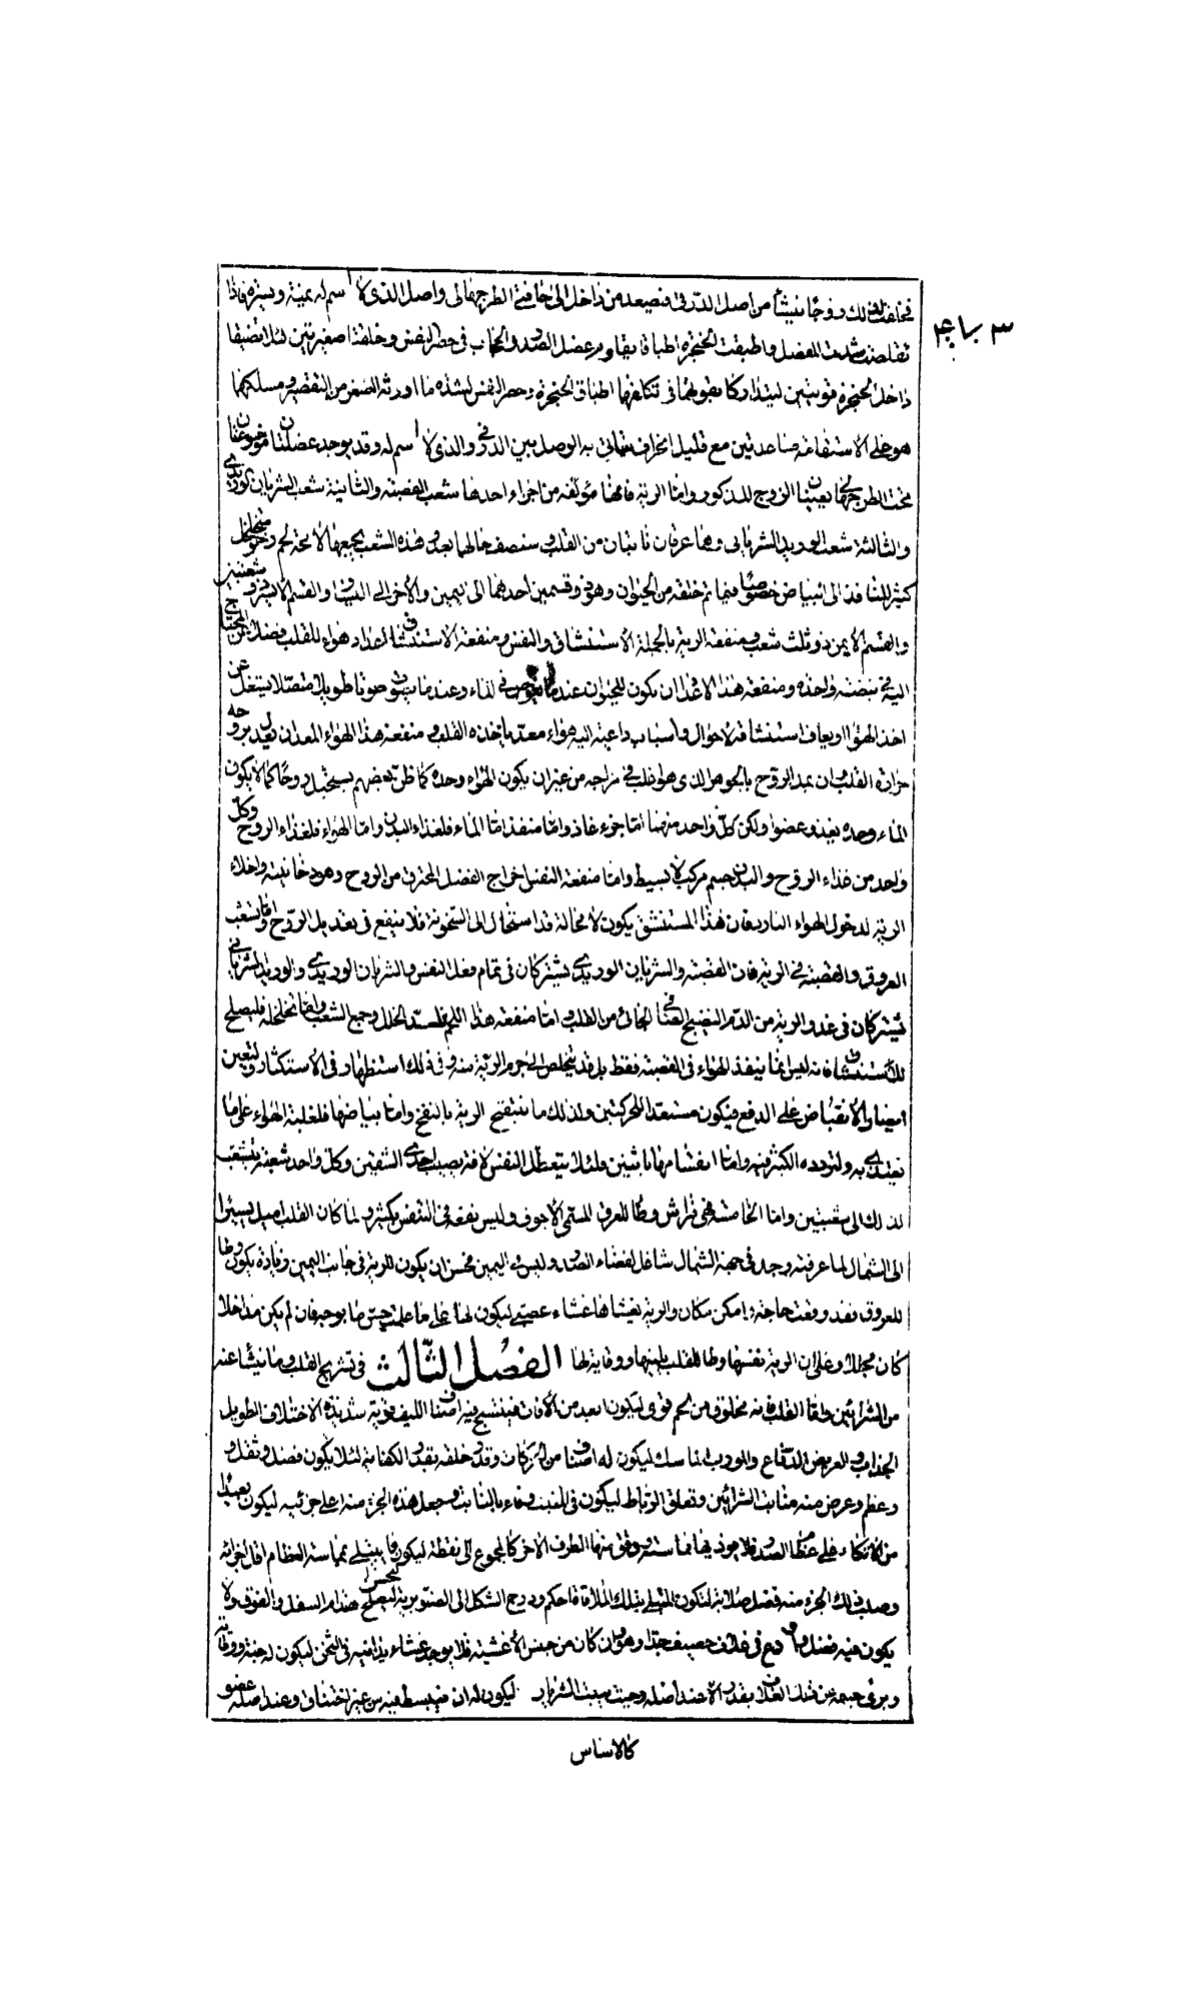 فخلقت لذلك زوجا ينشأ من اصل الدرقى فيصعد من داخل الى حافتى الطرجهالى واصل الذى لا اسم له يمنة ويسرة فاذا
تقلصت شدت المفصل واطبقت الحنجرة اطباقا يقاوم عضل الصدر والحجاب فى حصر النفس وخلقتا صغيرتين لئلا تضيقا
داخل الحنجرة قويتين ليتداركا بقوتهما فى تكلفهما اطباق الحنجرة وحصر النفس بشدة ما اورثه الصغر من التقصير ومسلكهما
هو على الاستقامة صاعدتين مع قليل انحراف يتأتى به الوصل بين الدرقى والذى لا اسم له وقد يوجد عضلتان موضوعتان
تحت الطرجهالى يعينان الزوج المذكور واما الرية فانها مؤلفة من اجزاء احدها شعب القصبة والثانية شعب الشريان الوريدى
والثالثة شعب الوريد الشريانى وهما عرقان ناتيان من القلب وسنصف حالهما بعد وهذه الشعب يجمعها لا محة لحم رخو متخلخل
كثير المنافذ الى البياض خصوصا فيما تم خلقه من الحيوان وهو ذو قسمين احدهما الى اليمين والآخر الى اليسار والقسم الايسر ذو شعبتين
والقسم الايمن ذو ثلث شعب ومنفعة الرية بالجملة الاستنشاق والنفس ومنفعة الاستنشاق اعداد هواء للقلب فضل عن المحتاج
اليه فى نبضة واحدة ومنفعة هذا الاعداد ان يكون للحيوان عندما يغوص فى الماء وعند ما يصوت صوتا طويلا متصلا يشغل عن
اخذ الهواء او يعاف استنشاقه لاحوال واسباب داعية اليه هواء معد ياخذه القلب ومنفعة هذا الهواء المعد ان يعدل بروحه
حرارة القلب وان يمد الروح بالجوهر الذى هو اغلب فى مزاجه من غير ان يكون الهواء وحده كما ظن بعضهم يستحيل روحا كما لا يكون
الماء وحده يغذو عضوا ولكن كل واحد منهما اما جزء غاذ واما منفذ اما الماء فلغذاء البدن واما الهواء فلغذاء الروح وكل
واحد من غذاء الروح والبدن جسم مركب لا بسيط واما منفعة النفس اخراج الفضل المحترق من الروح وهو دخانيته واخلاء
الرية لدخول الهواء البارد فان هذا المستنشق يكون لا محالة قد استحال الى السخونة فلا ينفع فى تعديل الروح واما تشعب
العروق والقصبة فى الرية فان القصبة والشريان الوريدى يشتركان فى تمام فعل النفس والشريان الوريدى والوريد الشريانى
يشتركان فى غذو الرية من الدم النضيج الصافى الجائى من القلب واما منفعة هذا اللحم فلسد الخلل وجمع الشعب واما تخلخله فليصلح
للاستنشاق فانه ليس انما ينفذ الهواء فى القصبة فقط بل قد يتخلص الى جوم الرية منه وفى ذلك استظهار فى الاستكثار وليعين
ايضا بالانقباض على الدفع فيكون مستعدا للحركتين ولذلك ما تنتفخ الرية بالنفخ واما بياضها فلغلبة الهواء على ما
تغتذى به ولتردده الكثير فيه واما انقسامها باثنين فلئلا يتعطل النفس لافة يصيب احدى الشقين وكل واحد شعبة يتشعب
كذلك الى شعبتين واما الخامسة فهى فراش وطأ للعرق المسمى الاجوف وليس نفعه فى التنفس بكثير ولما كان القلب اميل يسيرا
الى الشمال لما عرفته وجد فى جهة الشمال شاغل لفضاء الصدر وليس فى اليمين فحسن ان يكون للرية فى جانب اليمين زيادة يكون وطأ
للعروق فقد وقعت حاجة او امكن مكان والرية يغشاها غشاء عصبى ليكون لها على ما علمت حس ما بوجه فان لم يكن مداخلا
كان مجللا وعلى ان الرية نفسها وطأ للقلب بلينها ووقاية لها الفصل الثالث فى تشريح القلب وما ينشأ عنه
من الشرايين واما القلب فانه مخلوق من لحم قوى ليكون ابعد من الافات فينتسج فيه اصناف الليف قوية شديدة الاختلاف الطويل
الجذاب والعريض الدفاع والمورب الماسك ليكون له اصناف من الحركات وقدر خلقه بقدر الكفاية لئلا يكون فضل وثقل و
عظم وعرض منه منابت الشرايين وتعلق الرباط ليكون فى المنبت وفاء بالنابت وجعل هذه الجزء منه اعلى جزئيه ليكون بعيدا
من الاتكاء على عظام الصدر فلا يوذيها مماسته ودقق منه الطرف الاخر كالمجموع الى نقطة ليكون ما يبتلى بمماسة العظام اقل اجزائه
وصلب ذلك الجزء منه فضل صلابة لتكون المبتلى بتلك الملاقاة احكم ودرج الشكل الى الصنوبرية ليحسن هندام السفل والفوق ولا
يكون فيه فضل واودع فى غلاف حصيف جدا وهو وان كان من جنس الاغشية فلا يوجد غشاء يدانيه فى الثخن ليكون له جنة ووقاية
وبرئ جسمه عن ذلك الغلاف بقدر الا عند اصله وحيث ينبت الشريان ليكون له ان ينبسط فيه من غير اختناق وعند اصله عضو
كالاساس